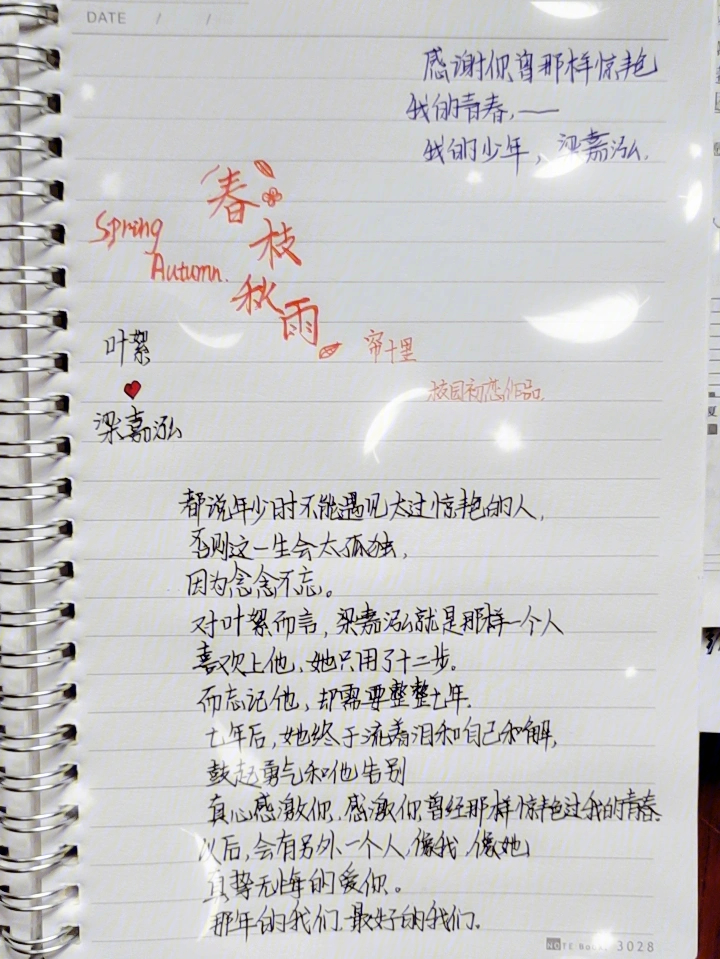 DATE / /
感谢你曾那样惊艳
我的青春，——
我的少年，梁嘉泓.
春
枝
Spring
Autumn.
秋
雨
帘十里
校园初恋作品.
叶絮
梁嘉泓
都说年少时不能遇见太过惊艳的人，
否则这一生会太孤独，
因为念念不忘。
对叶絮而言，梁嘉泓就是那样一个人
喜欢上他，她只用了十二步。
而忘记他，却需要整整七年.
七年后，她终于流着泪和自己和解，
鼓起勇气和他告别
真心感激你，感激你曾经那样惊艳过我的青春
以后，会有另外一个人，像我，像她，
真挚无悔的爱你。
那年的我们，最好的我们.
NOTE Book. 3028